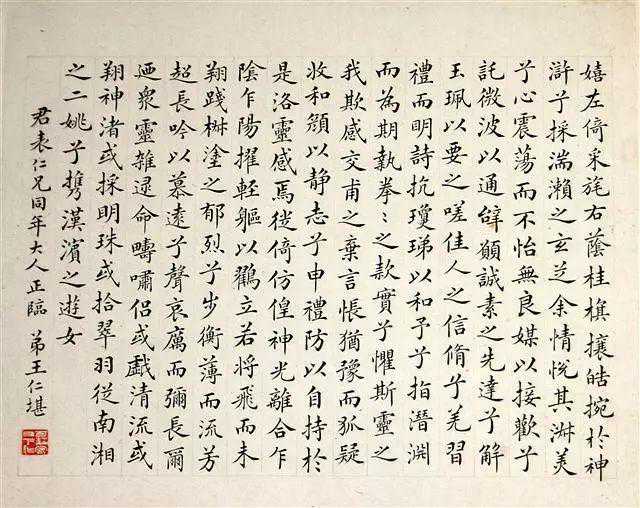 嬉左倚采旄右蔭桂旗攘皓捥於神
滸兮採湍瀨之玄芝余情悅其淑美
兮心震蕩而不怡無良媒以接歡兮
託微波以通辭願誠素之先達兮解
玉珮以要之嗟佳人之信脩兮羌習
禮而明詩抗瓊珶以和予兮指潛淵
而為期執拳〻之款實兮懼斯靈之
我欺感交甫之棄言悵猶豫而狐疑
收和顏以靜志兮申禮防以自持於
是洛靈感焉徙倚仿偟神光離合乍
陰乍陽擢軽軀以鸖立若將飛而未
翔踐椒塗之郁烈兮步衡薄而流芳
超長吟以慕遠兮聲哀厲而彌長爾
迺衆靈雜遝命疇嘯侶或戲清流或
翔神渚或採明珠或拾翠羽從南湘
之二姚兮携漢濱之遊女
君表仁兄同年大人正臨 弟王仁堪